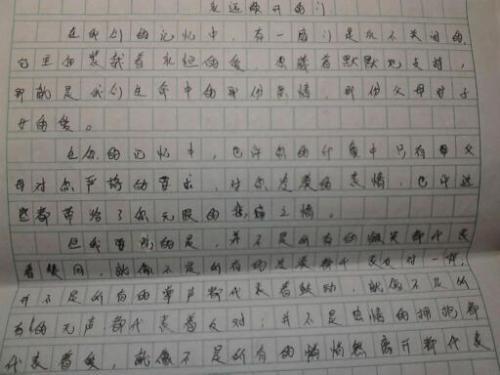 永远敞开的门
在我们的记忆中，有一扇门是永不关闭的，
它里面装载着永恒的爱，意味着默默地支持，
那就是我们生命中的那份亲情，那份父母对子
女的爱。
在你的记忆中，也许你的印象中只有父
母对你严格的要求，对你发怒的表情，也许这
些都带给了你无限的之情。
但我要说的是，并不是所有的微笑都代表
着赞同，就像不是所有的发怒都代表反对一样；
并不是所有的掌声都代表着鼓动，就像不是所
有的无声都代表着反对；并不是热情的拥抱都
代表着爱，就像不是所有的悄悄然离开都代表